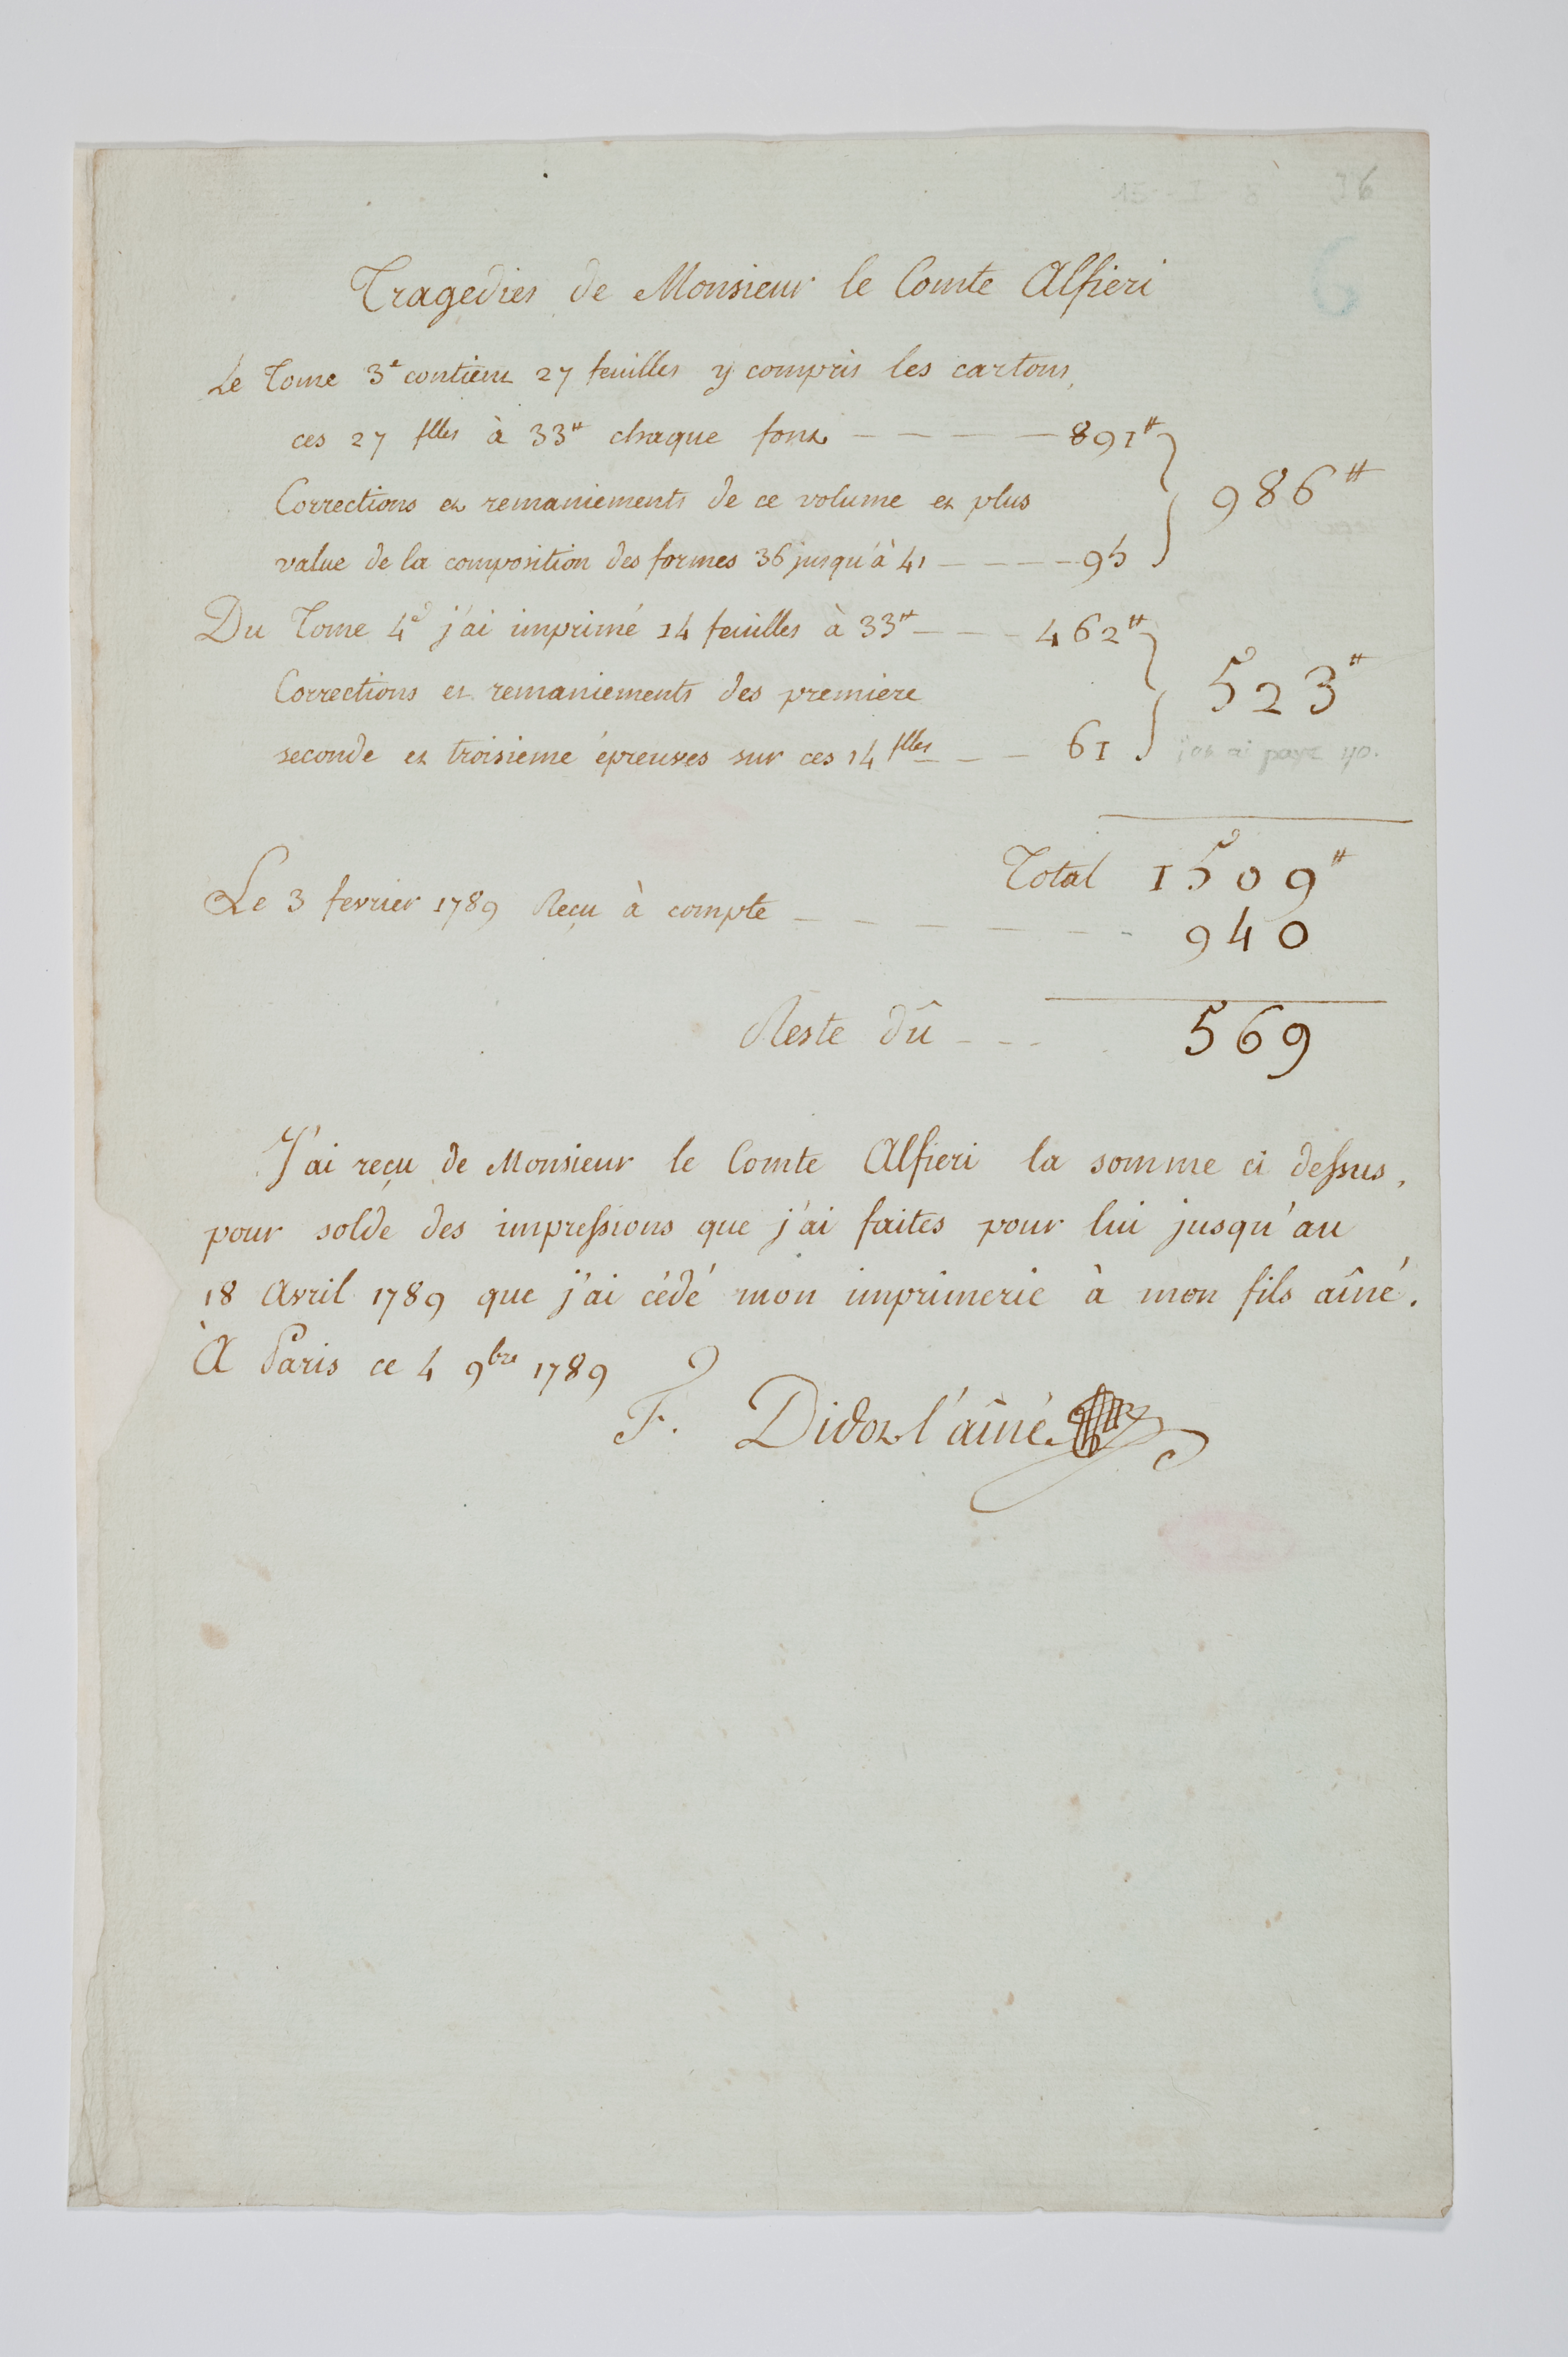 36
6
Tragedies de Monsieur le Comte Alfieri
Le Tome 3e contient 27 feuilles y compris les cartons,
ces 27 flles à 33# chaque font — — — — — 891# } 986#
Corrections et remaniements de ce volume et plus
value de la composition des formes 36 jusqu'à 41 — — — — 95
Du Tome 4e j'ai imprimé 14 feuilles à 33# — — — 462# } 523#
Corrections et remaniements des premiere
seconde et troisieme épreuves sur ces 14 flles — — — 61
j'en ai payé
Total 1509#
Le 3 fevrier 1789 Reçu à compte — — — — — — - 940
Reste dû - - - . 569
J'ai reçu de Monsieur le Comte Alfieri la somme ci dessus,
pour solde des impressions que j'ai faites pour lui jusqu'au
18 Avril 1789 que j'ai cédé mon imprimerie à mon fils aîné.
A Paris ce 4 9bre 1789
F. Didot l'aîné